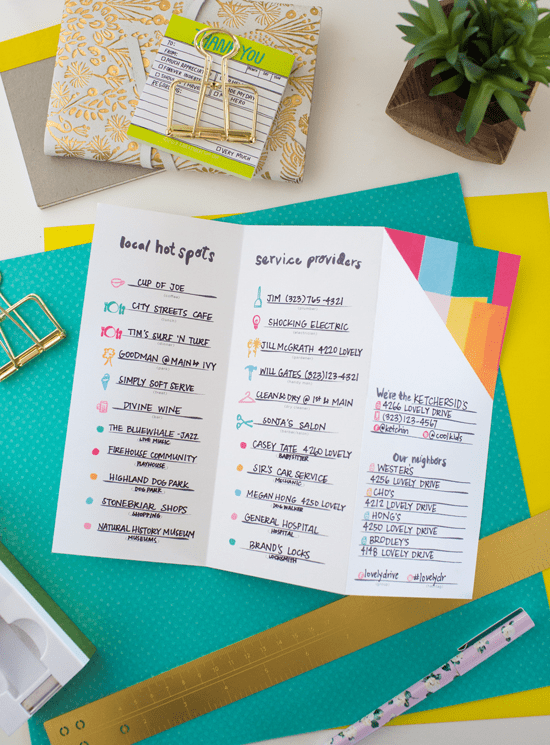 THANK YOU
TO:
FROM:
MUCH APPRECIATED
FOREVER
MADE MY DAY
HERO
VERY MUCH
local hot spots
CUP OF JOE
CITY STREETS CAFE
TIM'S SURF 'N TURF
GOODMAN @ MAIN & IVY
SIMPLY SOFT SERVE
DIVINE WINE
THE BLUEWHALE - JAZZ
LIVE MUSIC
FIREHOUSE COMMUNITY
PLAYHOUSE
HIGHLAND DOG PARK
DOG PARK
STONEBRIAR SHOPS
SHOPPING
NATURAL HISTORY MUSEUM
MUSEUMS
service providers
JIM (323) 765-4321
SHOCKING ELECTRIC
JILL MCGRATH 4220 LOVELY
WILL GATES (323) 123-4321
CLEAN & DRY @ 1st & MAIN
SONJA'S SALON
CASEY TATE 4260 LOVELY
BABYSITTER
SIR'S CAR SERVICE
MECHANIC
MEGAN HONG 4250 LOVELY
DOG WALKER
GENERAL HOSPITAL
HOSPITAL
BRAND'S LOCKS
LOCKSMITH
We're the KETCHERSID'S
4266 LOVELY DRIVE
(323) 123-4567
@ketchin @coolkids
Our neighbors
WESTER'S
4256 LOVELY DRIVE
CHO'S
4212 LOVELY DRIVE
HONG'S
4250 LOVELY DRIVE
BRODLEY'S
4198 LOVELY DRIVE
@lovelydrive #lovelydr